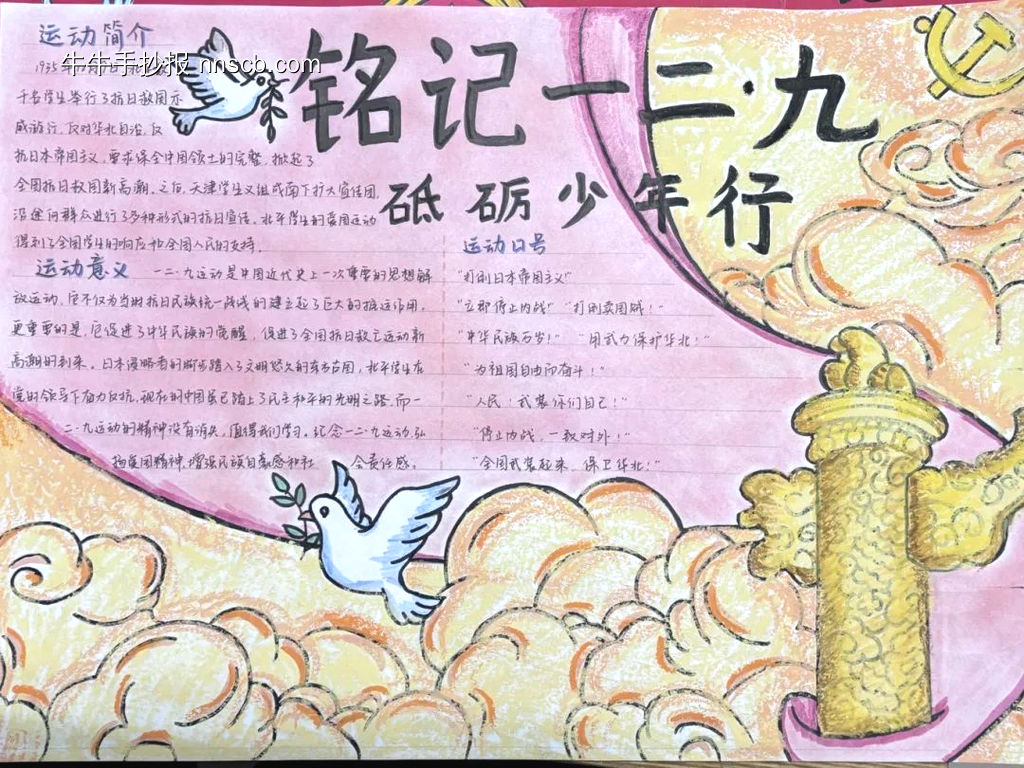 运动简介
牛牛手抄报 nnscb.com
铭记一二·九
砥砺少年行
1935年
千名学生举行了抗日救国示
威游行,反对华北自治,反
抗日本帝国主义,要求保全中国领土的完整,掀起了
全国抗日救国新高潮。之后,天津学生又组成南下扩大宣传团,
沿途向群众进行了多种形式的抗日宣传。北平学生的爱国运动
得到了全国学生的响应和全国人民的支持。
运动意义 一二·九运动是中国近代史上一次重要的思想解
放运动,它不仅为当时抗日民族统一战线的建立起了巨大的推进作用,
更重要的是,它促进了中华民族的觉醒,促进了全国抗日救亡运动新
高潮的到来。日本侵略者的脚步踏入了文明悠久的东方古国,北平学生在
党的领导下奋力反抗,现在的中国虽已踏上了民主和平的光明之路,而一
二·九运动的精神没有消失,值得我们学习。纪念一二·九运动,弘
扬爱国精神,增强民族自豪感和社会责任感。
运动口号
"打倒日本帝国主义"
"立即停止内战" "打倒卖国贼!"
"中华民族万岁!" "用武力保护华北!"
"为祖国自由而奋斗!"
"人民!武装你们自己!"
"停止内战,一致对外!"
"全国武装起来,保卫华北!"